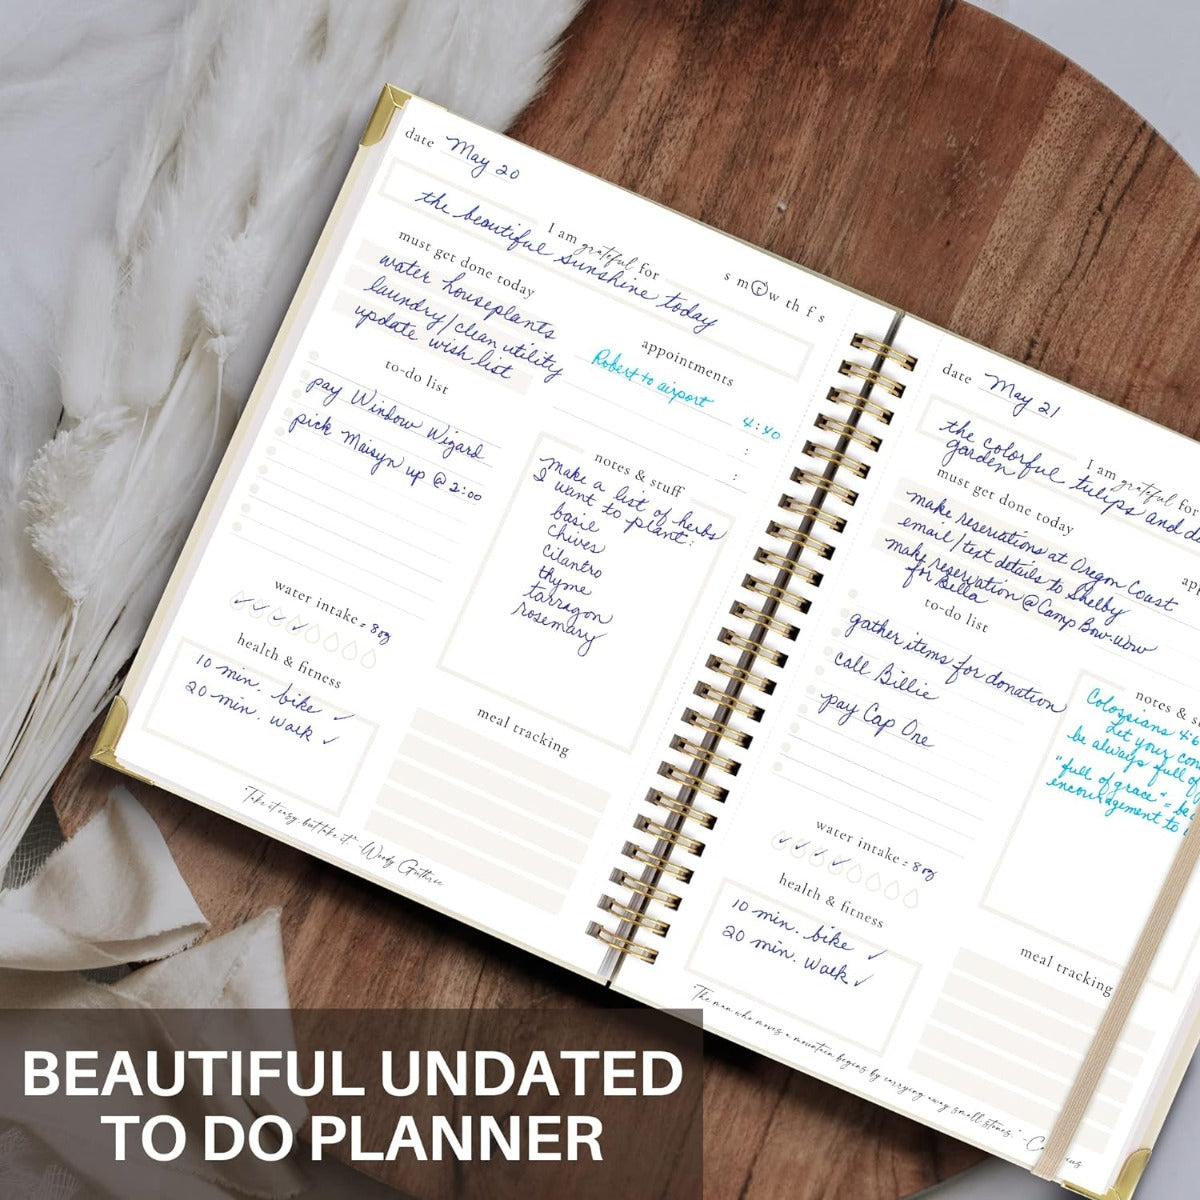 date May 20
I am grateful for
the beautiful sunshine today
s m t w th f s
must get done today
water houseplants
laundry/clean utility
update wish list
appointments
Robert to airport 4:40
:
:
to-do list
pay Window Wizard
pick Maisyn up @ 2:00
notes & stuff
make a list of herbs
I want to plant:
basil
chives
cilantro
thyme
tarragon
rosemary
water intake = 8oz
health & fitness
10 min. bike ✓
20 min. walk ✓
meal tracking
"Take it easy, but take it." -Woody Guthrie
date May 21
I am grateful for
the colorful tulips and
garden
must get done today
make reservations at Oregon Coast
email/text details to Shelby
make reservation @ Camp Bow-Wow
for Bella
to-do list
gather items for donation
call Billie
pay Cap One
notes &
Colossians 4:6
Let your
be always full of
"full of grace" =
encouragement to
water intake = 8oz
health & fitness
10 min. bike ✓
20 min. walk ✓
meal tracking
"The man who moves a mountain begins by carrying away small stones." -
BEAUTIFUL UNDATED
TO DO PLANNER